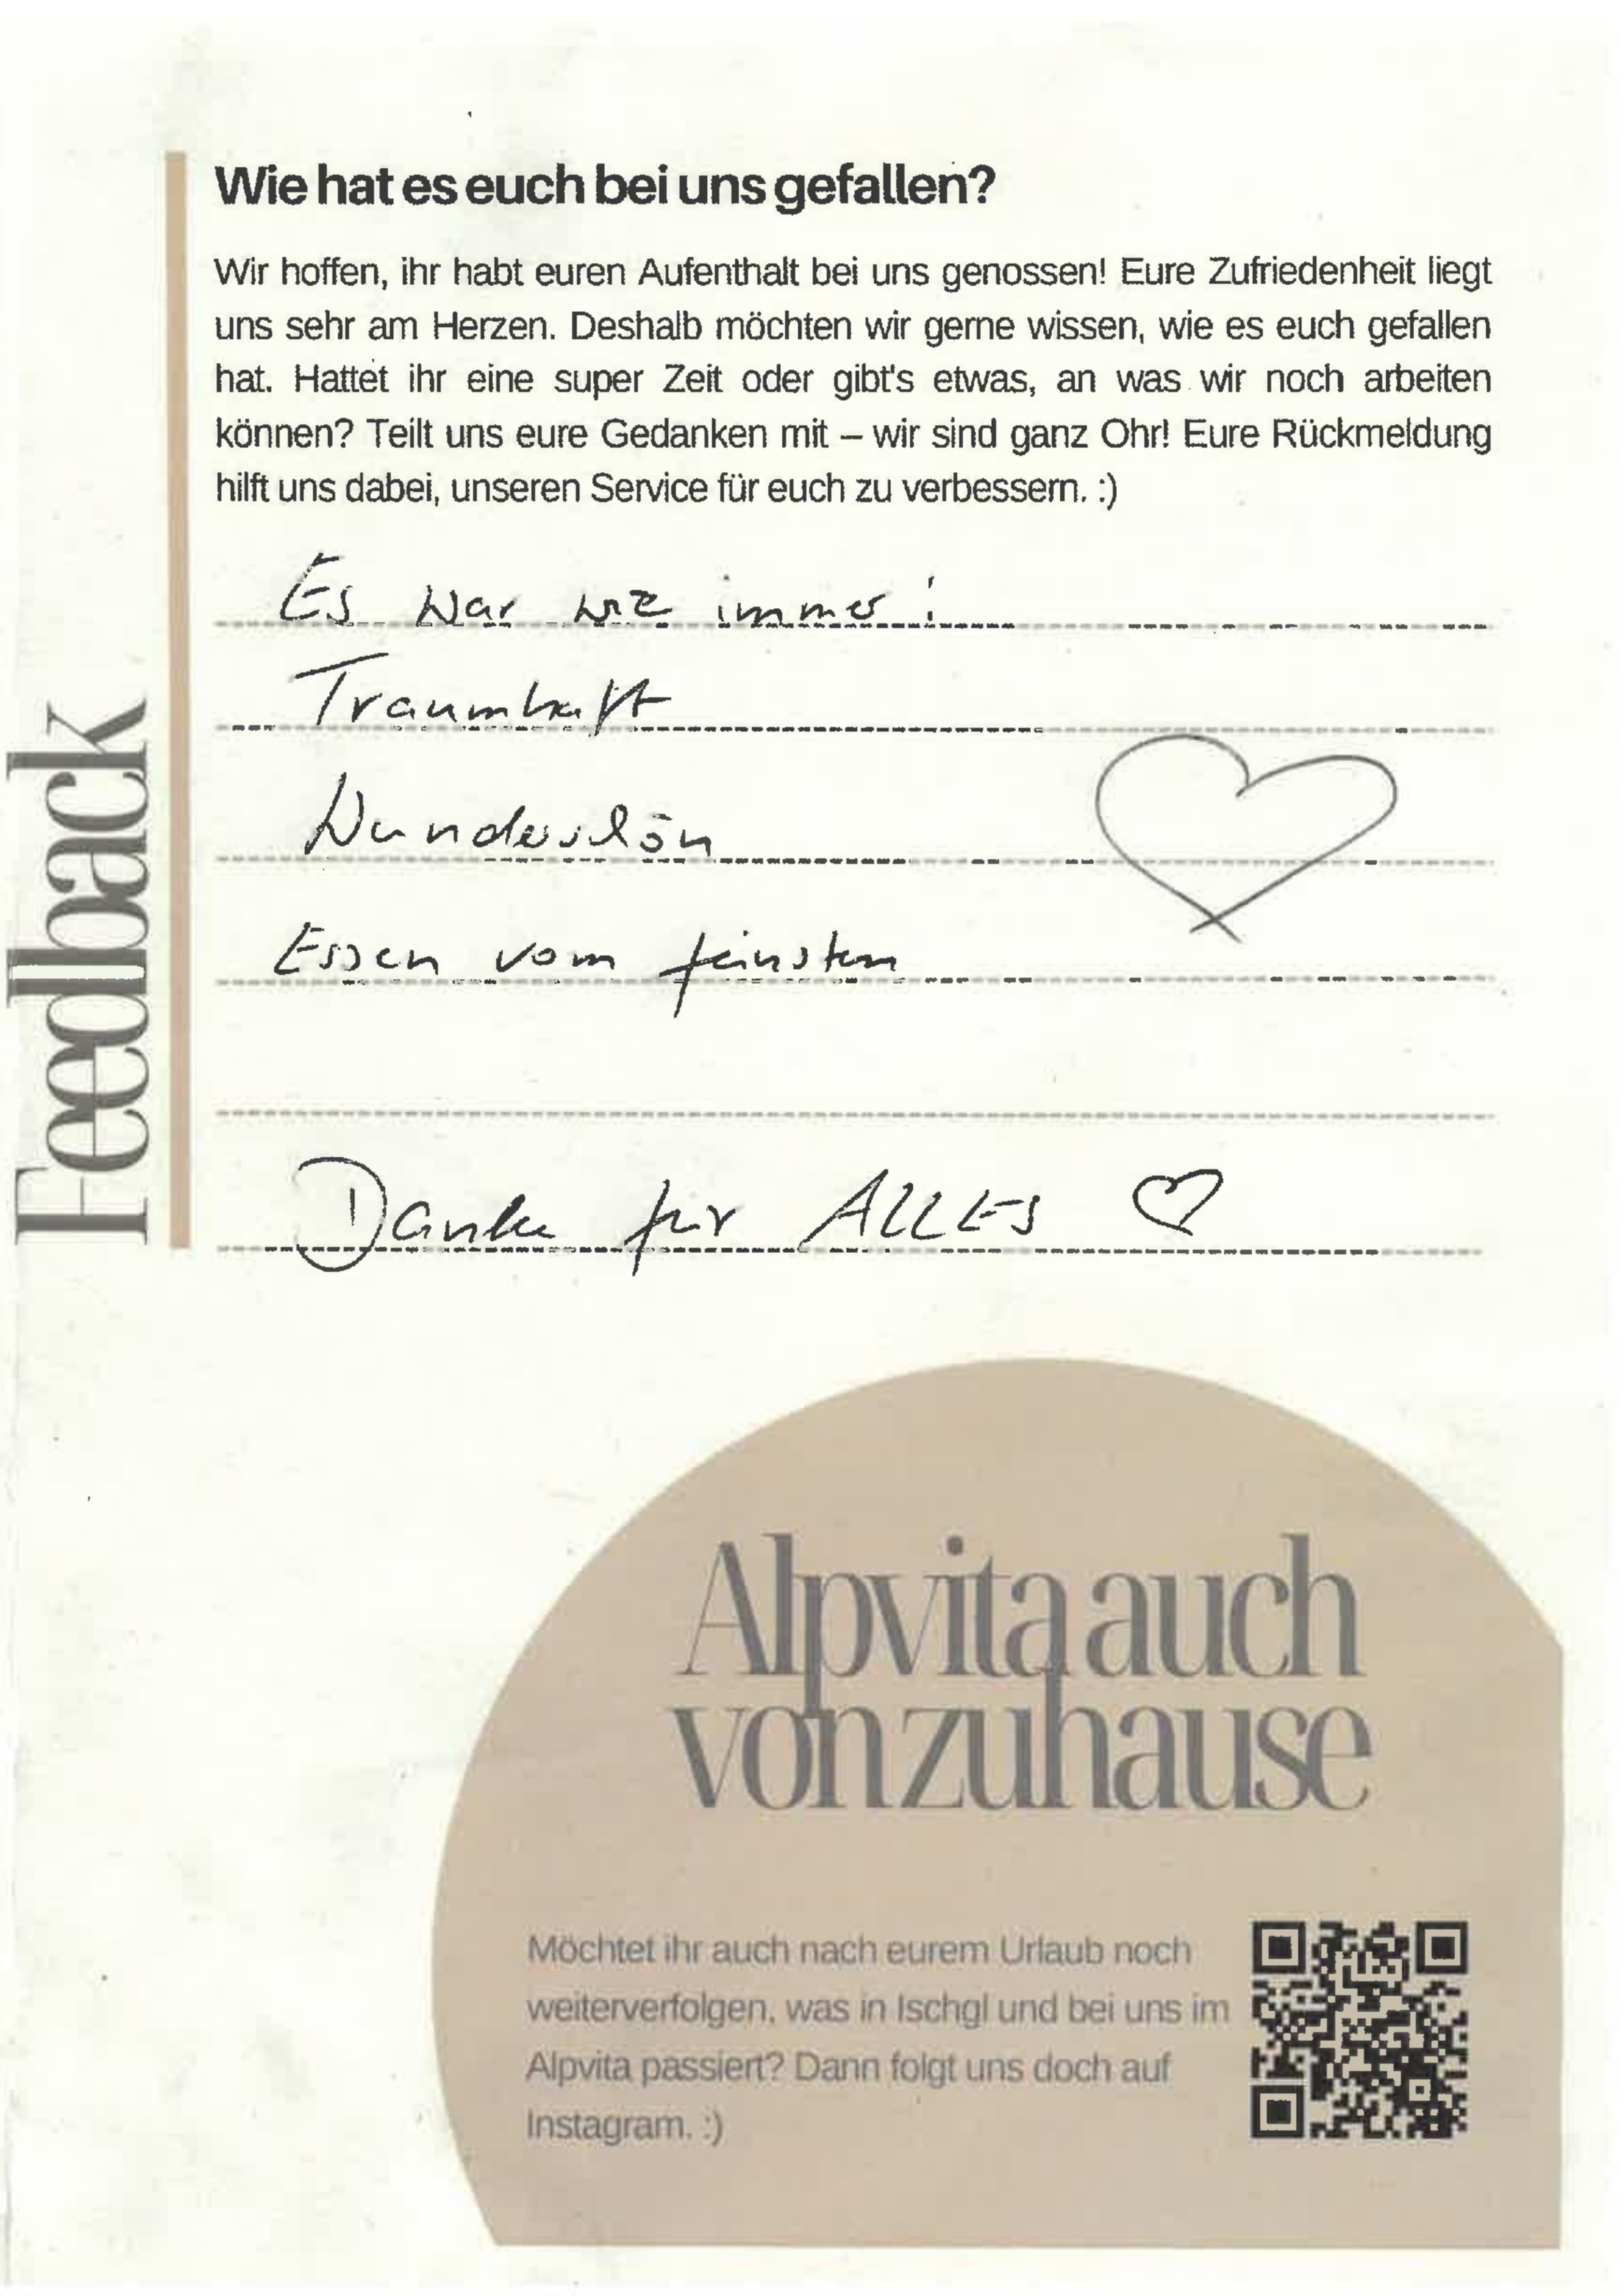 Wie hat es euch bei uns gefallen?
Wir hoffen, ihr habt euren Aufenthalt bei uns genossen! Eure Zufriedenheit liegt
uns sehr am Herzen. Deshalb möchten wir gerne wissen, wie es euch gefallen
hat. Hattet ihr eine super Zeit oder gibt's etwas, an was wir noch arbeiten
können? Teilt uns eure Gedanken mit – wir sind ganz Ohr! Eure Rückmeldung
hilft uns dabei, unseren Service für euch zu verbessern. :)
Es war wie immer!
Traumhaft
Wunderschön
Essen vom feinsten
Danke für ALLES ♡
Feedback
Alpvita auch
von zuhause
Möchtet ihr auch nach eurem Urlaub noch
weiterverfolgen, was in Ischgl und bei uns im
Alpvita passiert? Dann folgt uns doch auf
Instagram. :)